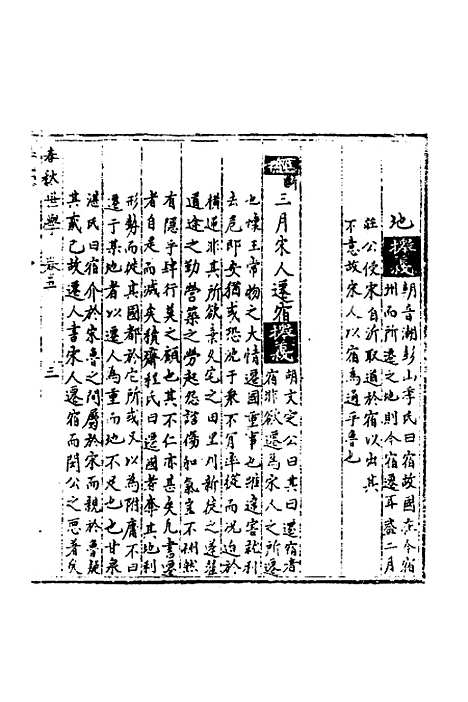 地掇義朝音湖彭山李氏曰宿故國在今宿
州而所遷之地則今宿遷耳蓋二月
莊公侵宋自沂取道於宿以出其
不意故宋人以宿為通乎魯也
經三月宋人遷宿掇義胡文定公曰其曰遷宿者
宿非欲遷為宋人之所遷
也懷土常物之大情遷國重事也雖違害就利
去危即安猶或恐沈于眾不肯率從而況迫於
橫逆非其所欲棄久宅之田里刈新徙之蓬藿
道途之勤營築之勞起怨諮傷和氣豈不惻然
有隱乎肆行莫之顧也其不仁亦甚矣凡書遷
者自是而滅矣積齋程氏曰遷國者奪其地利
形勢而徙其國都於它所或又以為附庸不曰
遷于某地者以遷人為重而地不足也也甘泉
湛氏曰宿介於宋魯之間屬於宋而親於魯疑
其貳已故遷人書宋人遷宿而閔公之惡著矣
春秋世學 卷五 三